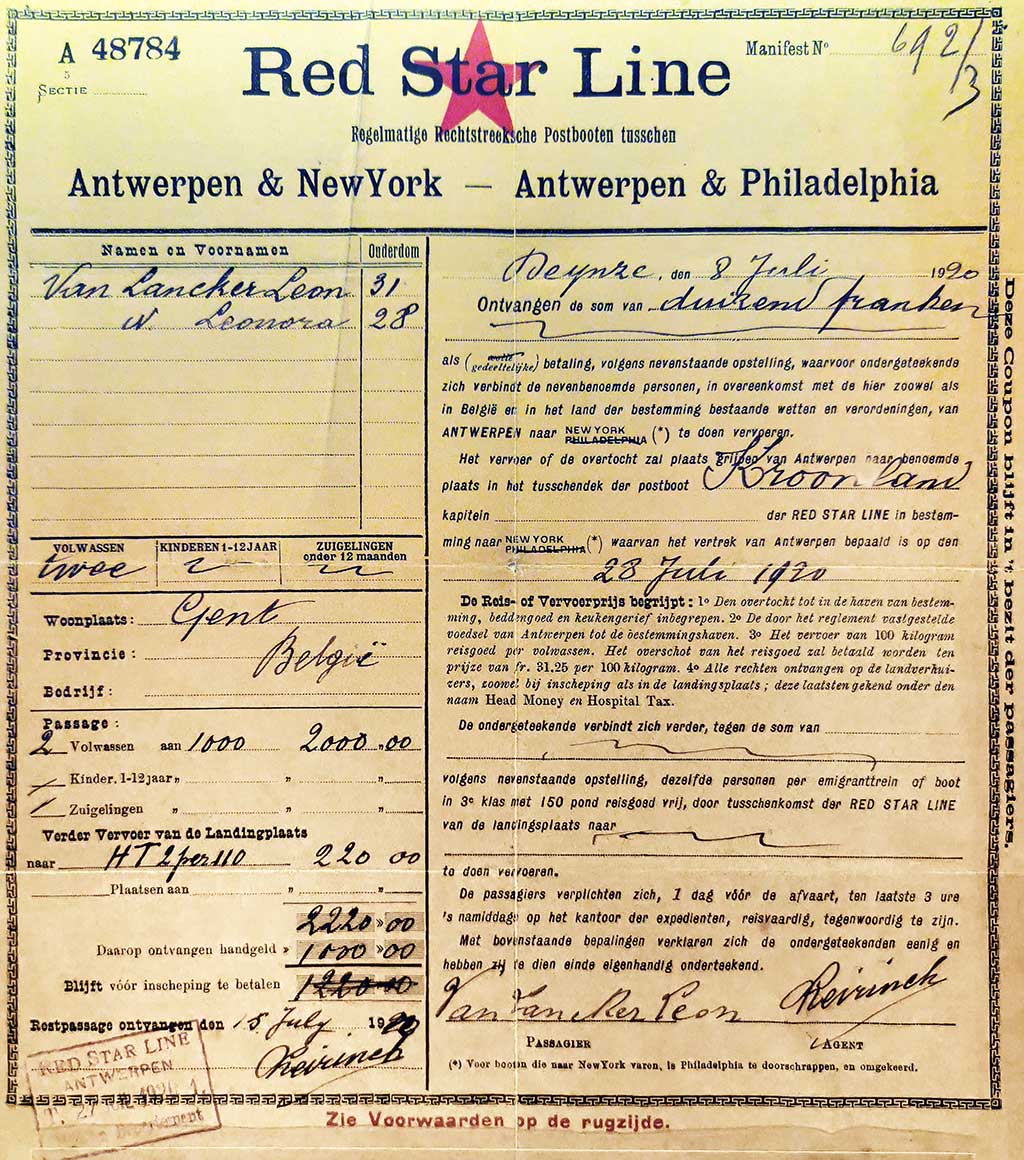 A 48784
5
SECTIE
Manifest No 692/3
Red Star Line
Regelmatige Rechtstreeksche Postbooten tusschen
Antwerpen & New York — Antwerpen & Philadelphia
Namen en Voornamen Ouderdom
Van Lancker Leon 31
" Leonora 28
VOLWASSEN KINDEREN 1-12 JAAR ZUIGELINGEN onder 12 maanden
twee
Woonplaats: Gent
Provincie: België
Bedrijf:
Passage:
2 Volwassen aan 1000 2000 "00
Kinder. 1-12 jaar " " "
Zuigelingen " " "
Verder Vervoer van de Landingplaats
naar HT 2 per 110 220 00
Plaatsen aan " "
2220 »00
Daarop ontvangen handgeld » 1000 »00
Blijft vóór inscheping te betalen 1220 00
Restpassage ontvangen den 15 July 1920
RED STAR LINE
ANTWERPEN
Deynze, den 8 Juli 1920
Ontvangen de som van duizend franken
als (volle gedeeltelijke) betaling, volgens nevenstaande opstelling, waarvoor ondergeteekende
zich verbindt de nevenbenoemde personen, in overeenkomst met de hier zoowel als
in België en in het land der bestemming bestaande wetten en verordeningen, van
ANTWERPEN naar NEW YORK PHILADELPHIA (*) te doen vervoeren.
Het vervoer of de overtocht zal plaats grijpen van Antwerpen naar benoemde
plaats in het tusschendek der postboot Kroonland
kapitein der RED STAR LINE in bestem-
ming naar NEW YORK PHILADELPHIA (*) waarvan het vertrek van Antwerpen bepaald is op den
28 Juli 1920
De Reis- of Vervoerprijs begrijpt: 1o Den overtocht tot in de haven van bestem-
ming, beddengoed en keukengerief inbegrepen. 2o De door het reglement vastgestelde
voedsel van Antwerpen tot de bestemmingshaven. 3o Het vervoer van 100 kilogram
reisgoed per volwassen. Het overschot van het reisgoed zal betaald worden ten
prijze van fr. 31.25 per 100 kilogram. 4o Alle rechten ontvangen op de landverhui-
zers, zoowel bij inscheping als in de landingsplaats; deze laatsten gekend onder den
naam Head Money en Hospital Tax.
De ondergeteekende verbindt zich verder, tegen de som van
volgens nevenstaande opstelling, dezelfde personen per emigranttrein of boot
in 3e klas met 150 pond reisgoed vrij, door tusschenkomst der RED STAR LINE
van de landingsplaats naar
te doen vervoeren.
De passagiers verplichten zich, 1 dag vóór de afvaart, ten laatste 3 ure
's namiddags op het kantoor der expedienten, reisvaardig, tegenwoordig te zijn.
Met bovenstaande bepalingen verklaren zich de ondergeteekenden eenig en
hebben zij te dien einde eigenhandig onderteekend.
Van Lancker Leon
PASSAGIER AGENT
(*) Voor booten die naar New York varen, is Philadelphia te doorschrappen, en omgekeerd.
Deze Coupon blijft in 't bezit der passagiers.
Zie Voorwaarden op de rugzijde.